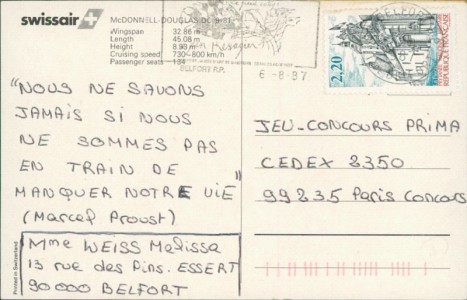 swissair
McDONNELL-DOUGLAS DC 9-81
Wingspan 32.86 m
Length 45.08 m
Height 8.93 m
Cruising speed 730-800 km/h
Passenger seats 134
BELFORT R.P.
6-8-87
BELFORT
2,20
RÉPUBLIQUE FRANÇAISE
"NOUS NE SAVONS
JAMAIS SI NOUS
NE SOMMES PAS
EN TRAIN DE
MANQUER NOTRE VIE"
(Marcel Proust)
Mme WEISS Melissa
13 rue des Pins. ESSERT
90000 BELFORT
JEU-CONCOURS PRIMA
CEDEX 2350
99235 Paris Concours
Printed in Switzerland